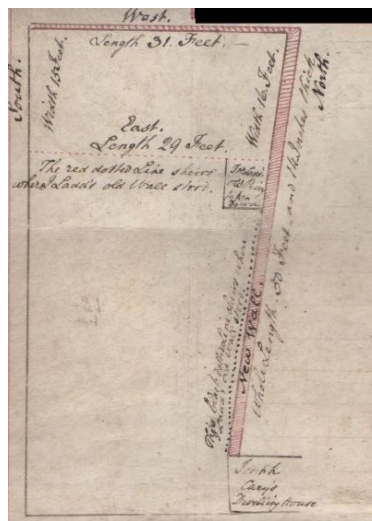 West.
Length 31. Feet.
South.
Width 15 Feet.
Width 16 Feet.
North.
East.
Length 29 Feet.
The red dotted Line shews
where J Ladd's old Wall stood.
taken
down
The black dotted Line shews where
Ladd's old Wall stood
New Wall.
Whole Length, 50 Feet and
Inches thick
Joseph
Cary's
Dwelling House